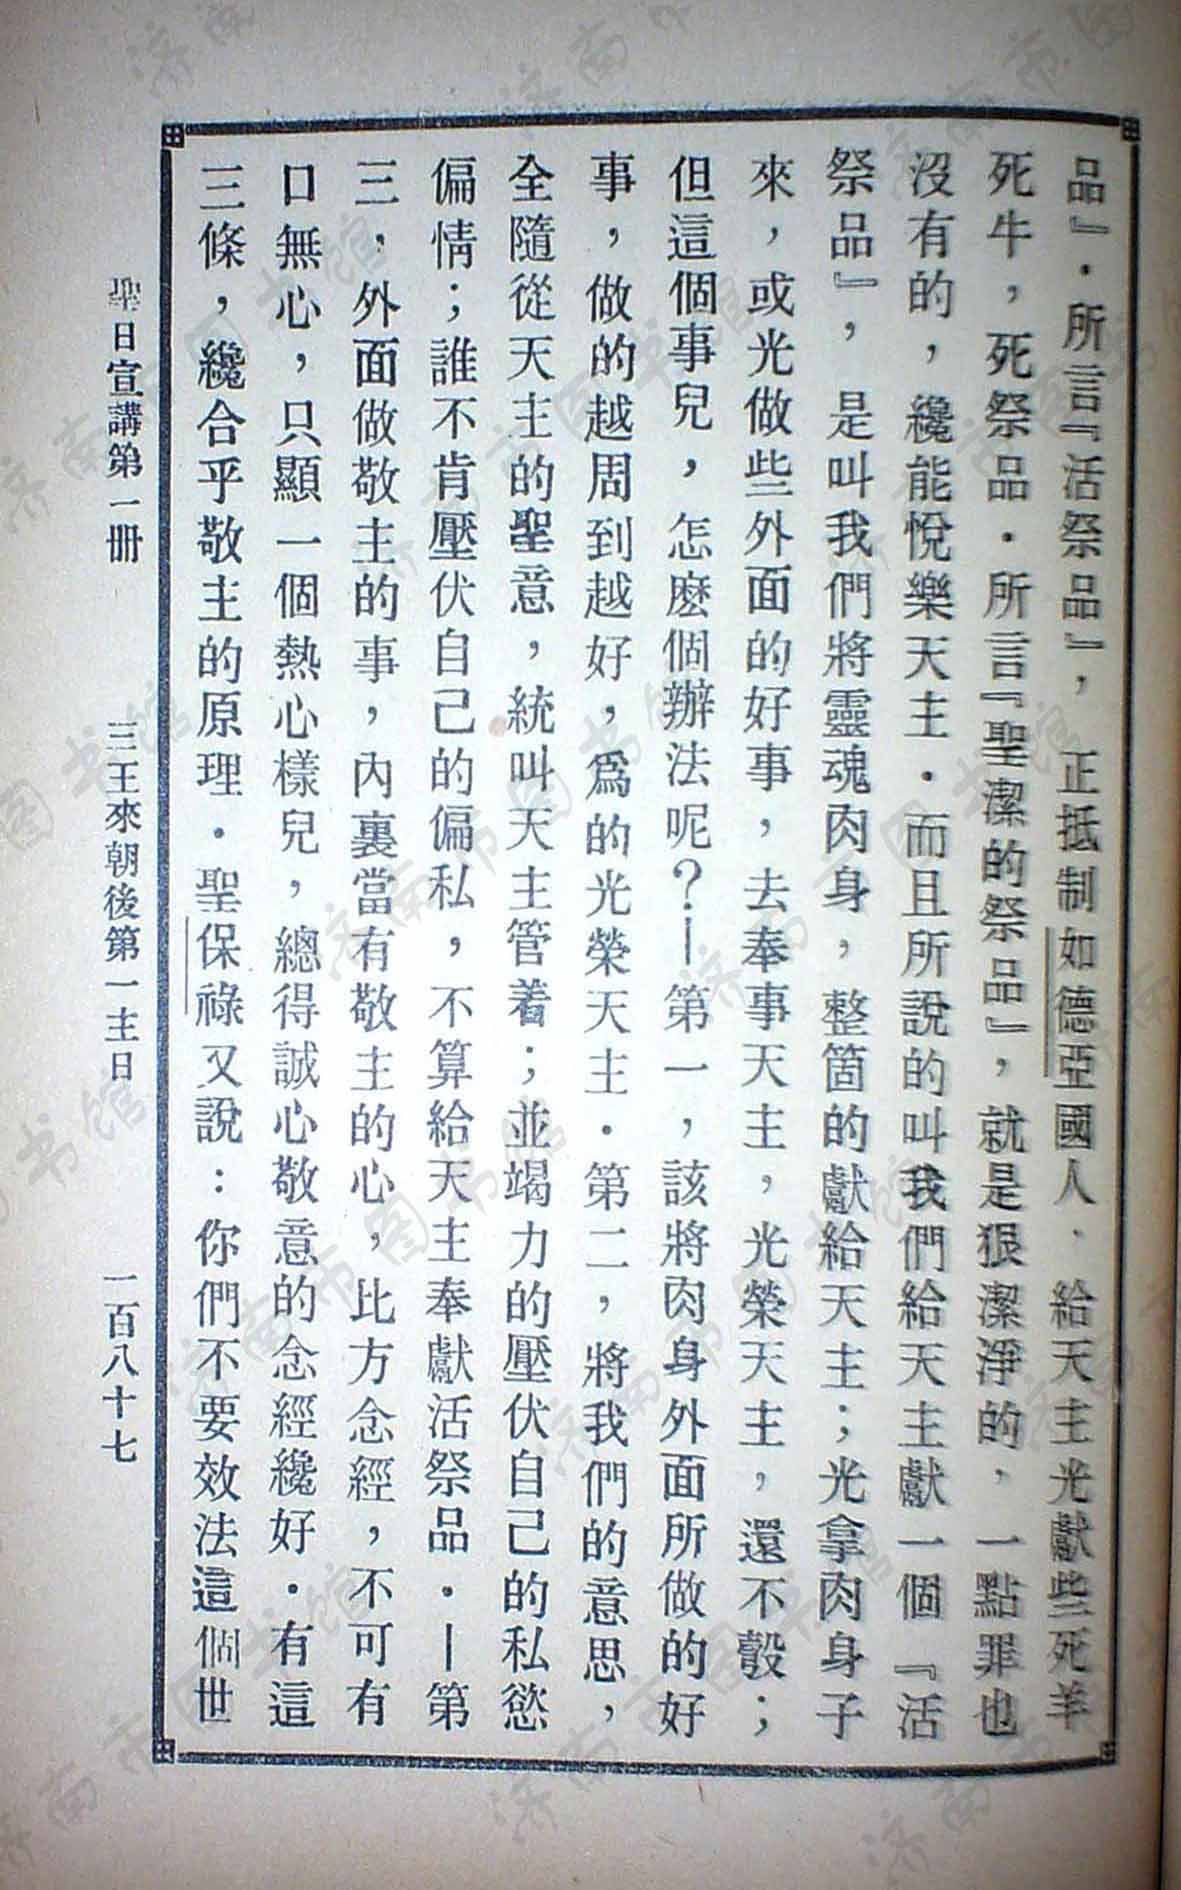 品』．所言『活祭品』，正抵制如德亞國人．給天主光獻些死羊
死牛，死祭品．所言『聖潔的祭品』，就是狠潔淨的，一點罪也
沒有的，纔能悅樂天主．而且所說的叫我們給天主獻一個『活
祭品』，是叫我們將靈魂肉身，整箇的獻給天主；光拿肉身子
來，或光做些外面的好事，去奉事天主，光榮天主，還不彀；
但這個事兒，怎麽個辦法呢？—第一，該將肉身外面所做的好
事，做的越周到越好，爲的光榮天主．第二，將我們的意思，
全隨從天主的聖意，統叫天主管着；並竭力的壓伏自己的私慾
偏情；誰不肯壓伏自己的偏私，不算給天主奉獻活祭品．—第
三，外面做敬主的事，內裏當有敬主的心，比方念經，不可有
口無心，只顯一個熱心樣兒，總得誠心敬意的念經纔好．有這
三條，纔合乎敬主的原理．聖保祿又說：你們不要效法這個世
聖日宣講第一冊　三王來朝後第一主日　一百八十七
济南市图书馆